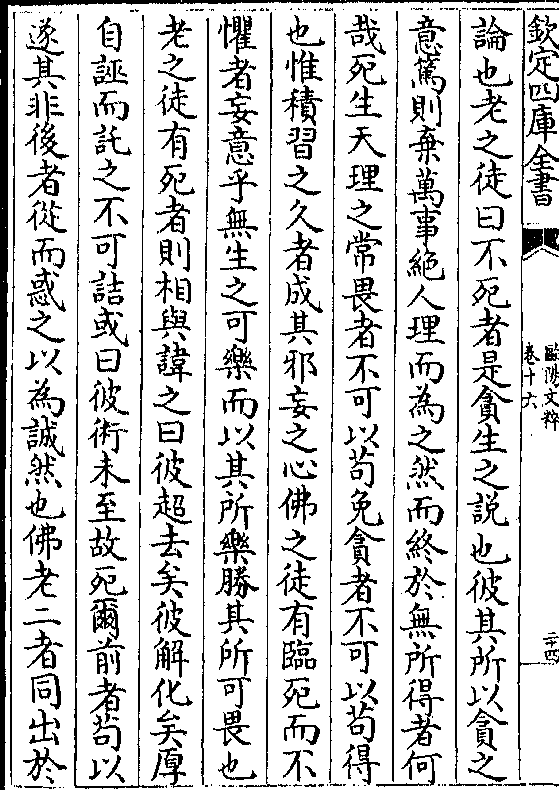 欽定四庫全書
歐陽文粹
卷十六
二十四
論也老之徒曰不死者是貪生之說也彼其所以貪之
意篤則棄萬事絶人理而為之然而終於無所得者何
哉死生天理之常畏者不可以苟免貪者不可以苟得
也惟積習之久者成其邪妄之心佛之徒有臨死而不
懼者妄意乎無生之可樂而以其所樂勝其所可畏也
老之徒有死者則相與諱之曰彼超去矣彼解化矣厚
自誣而託之不可詰或曰彼術未至故死爾前者苟以
遂其非後者從而惑之以為誠然也佛老二者同出於